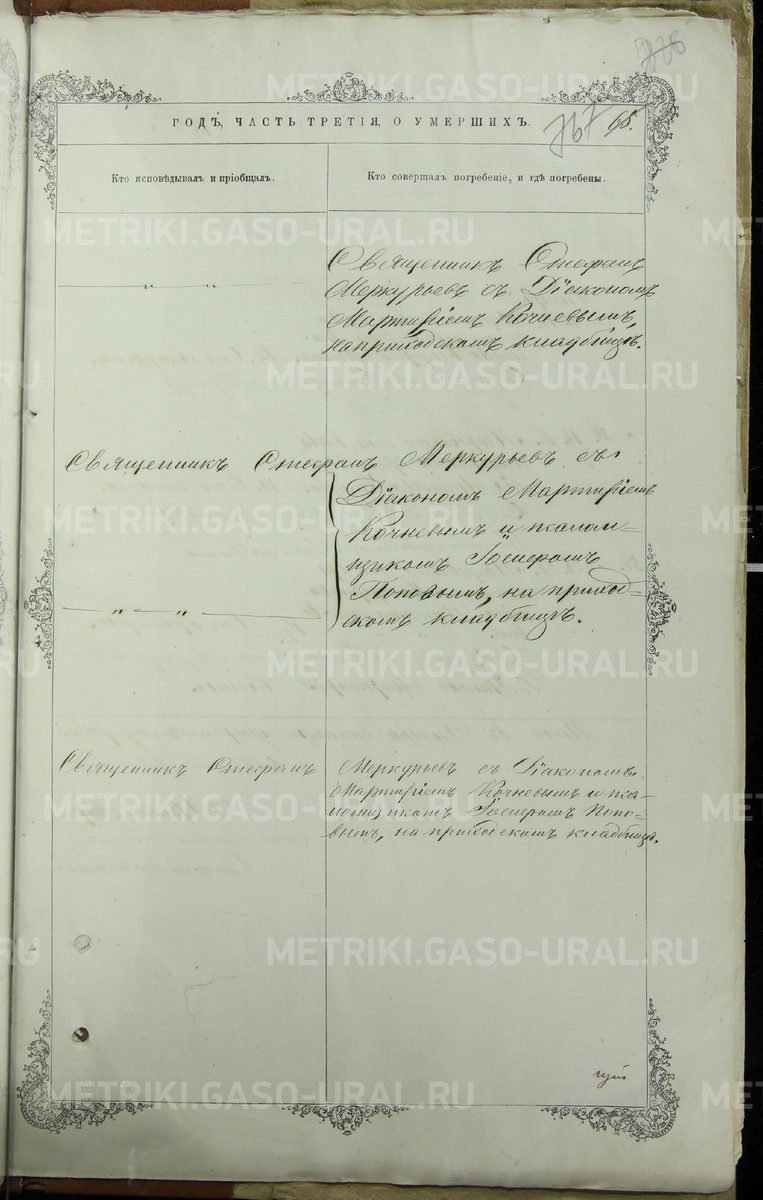 ГОДЪ, ЧАСТЬ ТРЕТІЯ, О УМЕРШИХЪ.
65.
Кто исповѣдывалъ и пріобщалъ.
Кто совершалъ погребеніе, и гдѣ погребены.
Священникъ Стефанъ
— „ „ —
Меркурьевъ съ Діакономъ
Мартиріемъ Кочневымъ,
на приходскомъ кладбищѣ.
Священникъ Стефанъ Меркурьевъ съ
Діакономъ Мартиріемъ
Кочневымъ и псалом-
щикомъ Іосифомъ
Поповымъ, на приход-
— „ — „ —
скомъ кладбищѣ.
Священникъ Стефанъ Меркурьевъ съ Діакономъ
Мартиріемъ Кочневымъ и пса-
ломщикомъ Іосифомъ Попо-
вымъ, на приходскомъ кладбищѣ.
METRIKI.GASO-URAL.RU